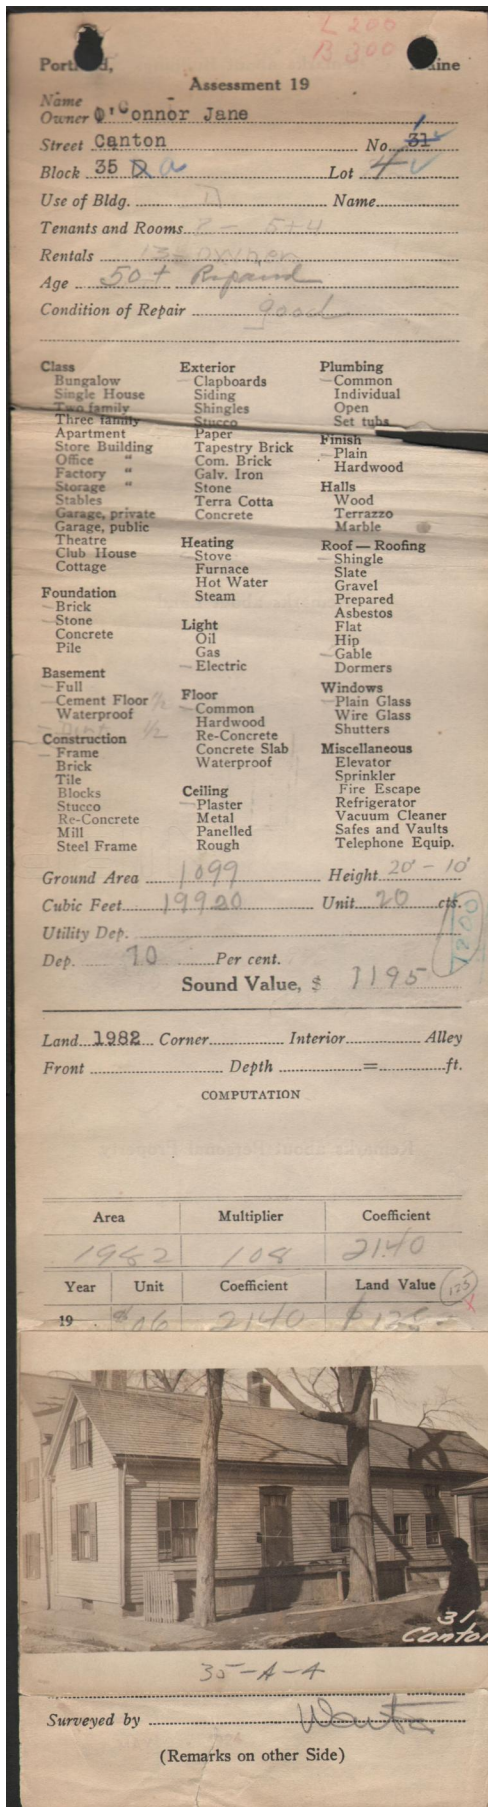 L 200
B 300
Portland, Maine
Assessment 19
Name
Owner O'Connor Jane
Street Canton No. 31
Block 35 D a Lot 4
Use of Bldg. D Name
Tenants and Rooms 2 - 5+4
Rentals 13-
Age 50+ Repaired
Condition of Repair good
Class
Bungalow
Single House
Two family
Three family
Apartment
Store Building
Office "
Factory "
Storage "
Stables
Garage, private
Garage, public
Theatre
Club House
Cottage
Foundation
Brick
Stone
Concrete
Pile
Basement
Full
Cement Floor 1/2
Waterproof
Dirt 1/2
Construction
Frame
Brick
Tile
Blocks
Stucco
Re-Concrete
Mill
Steel Frame
Exterior
Clapboards
Siding
Shingles
Stucco
Paper
Tapestry Brick
Com. Brick
Galv. Iron
Stone
Terra Cotta
Concrete
Heating
Stove
Furnace
Hot Water
Steam
Light
Oil
Gas
Electric
Floor
Common
Hardwood
Re-Concrete
Concrete Slab
Waterproof
Ceiling
Plaster
Metal
Panelled
Rough
Plumbing
Common
Individual
Open
Set tubs
Finish
Plain
Hardwood
Halls
Wood
Terrazzo
Marble
Roof — Roofing
Shingle
Slate
Gravel
Prepared
Asbestos
Flat
Hip
Gable
Dormers
Windows
Plain Glass
Wire Glass
Shutters
Miscellaneous
Elevator
Sprinkler
Fire Escape
Refrigerator
Vacuum Cleaner
Safes and Vaults
Telephone Equip.
Ground Area 1099 Height 20' - 10'
Cubic Feet 19920 Unit 20 cts.
Utility Dep. 1200
Dep. 70 Per cent.
Sound Value, $ 1195
Land 1982 Corner Interior Alley
Front Depth = ft.
COMPUTATION
Area Multiplier Coefficient
1982 108 2140
Year Unit Coefficient Land Value 125
19 $06 2140 $125-
31
Canton
35-A-4
Surveyed by
(Remarks on other Side)